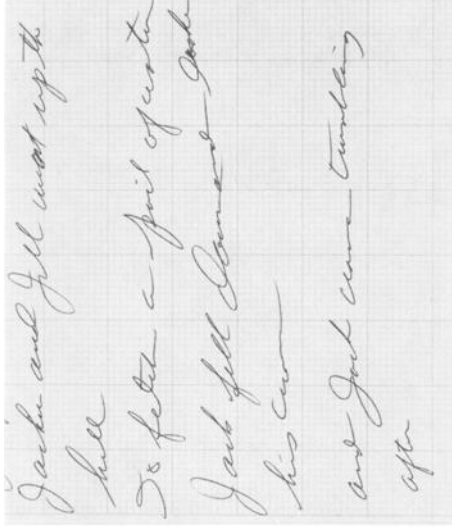 Jacke and Jill went up the
hill
To fetch a pail of water
Jack fell down and broke
his crow
and Jack came tumbling
after